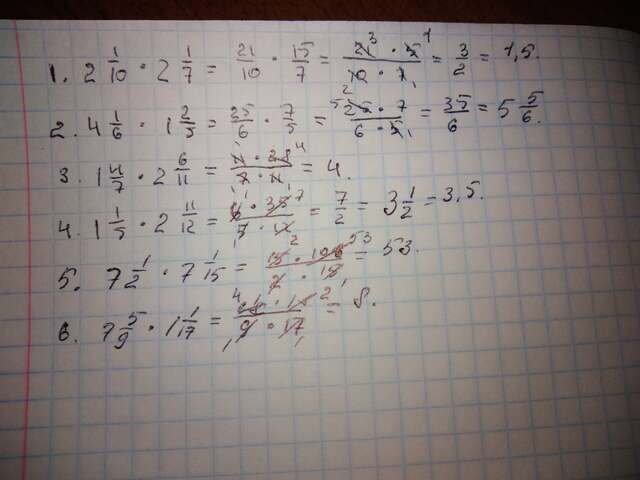 1. 2 1/10 · 2 1/7 = 21/10 · 15/7 = 21 3 · 5 1 / 10 · 7 1 = 3/2 = 1,5.
2. 4 1/6 · 1 2/5 = 25/6 · 7/5 = 5 25 · 7 / 6 · 5 1 = 35/6 = 5 5/6.
3. 1 4/7 · 2 6/11 = 11 1 · 28 4 / 7 · 11 = 4.
4. 1 1/5 · 2 11/12 = 6 1 · 35 7 / 5 1 · 12 = 7/2 = 3 1/2 = 3,5.
5. 7 1/2 · 7 1/15 = 15 · 106 53 / 2 · 15 = 53.
6. 7 5/9 · 1 1/17 = 4 68 · 18 2 / 9 1 · 17 1 = 8.